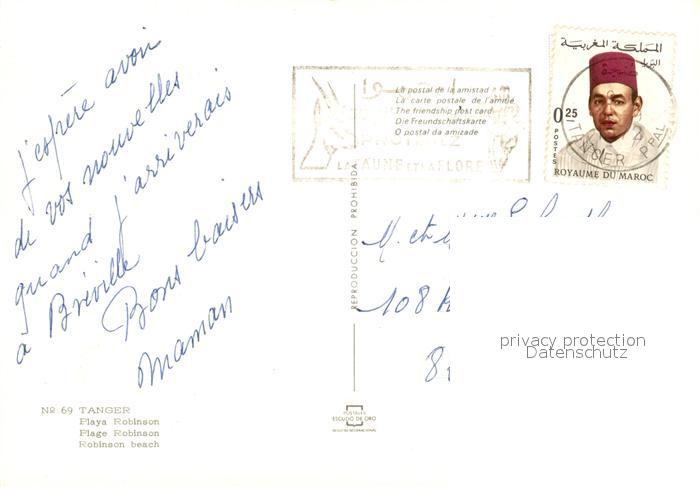 j'espère avoir
de vos nouvelles
quand j'arriverais
à Bréville
Bons baisers
Maman
Nº 69 TANGER
Playa Robinson
Plage Robinson
Robinson beach
REPRODUCCION PROHIBIDA
POSTALES
ESCUDO DE ORO
La postal de la amistad
La carte postale de l'amitié
The friendship post card
Die Freundschaftskarte
O postal da amizade
PROTEGEZ
LA FAUNE ET LA FLORE
المملكة المغربية
البريد
0,25
POSTES
TANGER
ROYAUME DU MAROC
M. et
108
privacy protection
Datenschutz